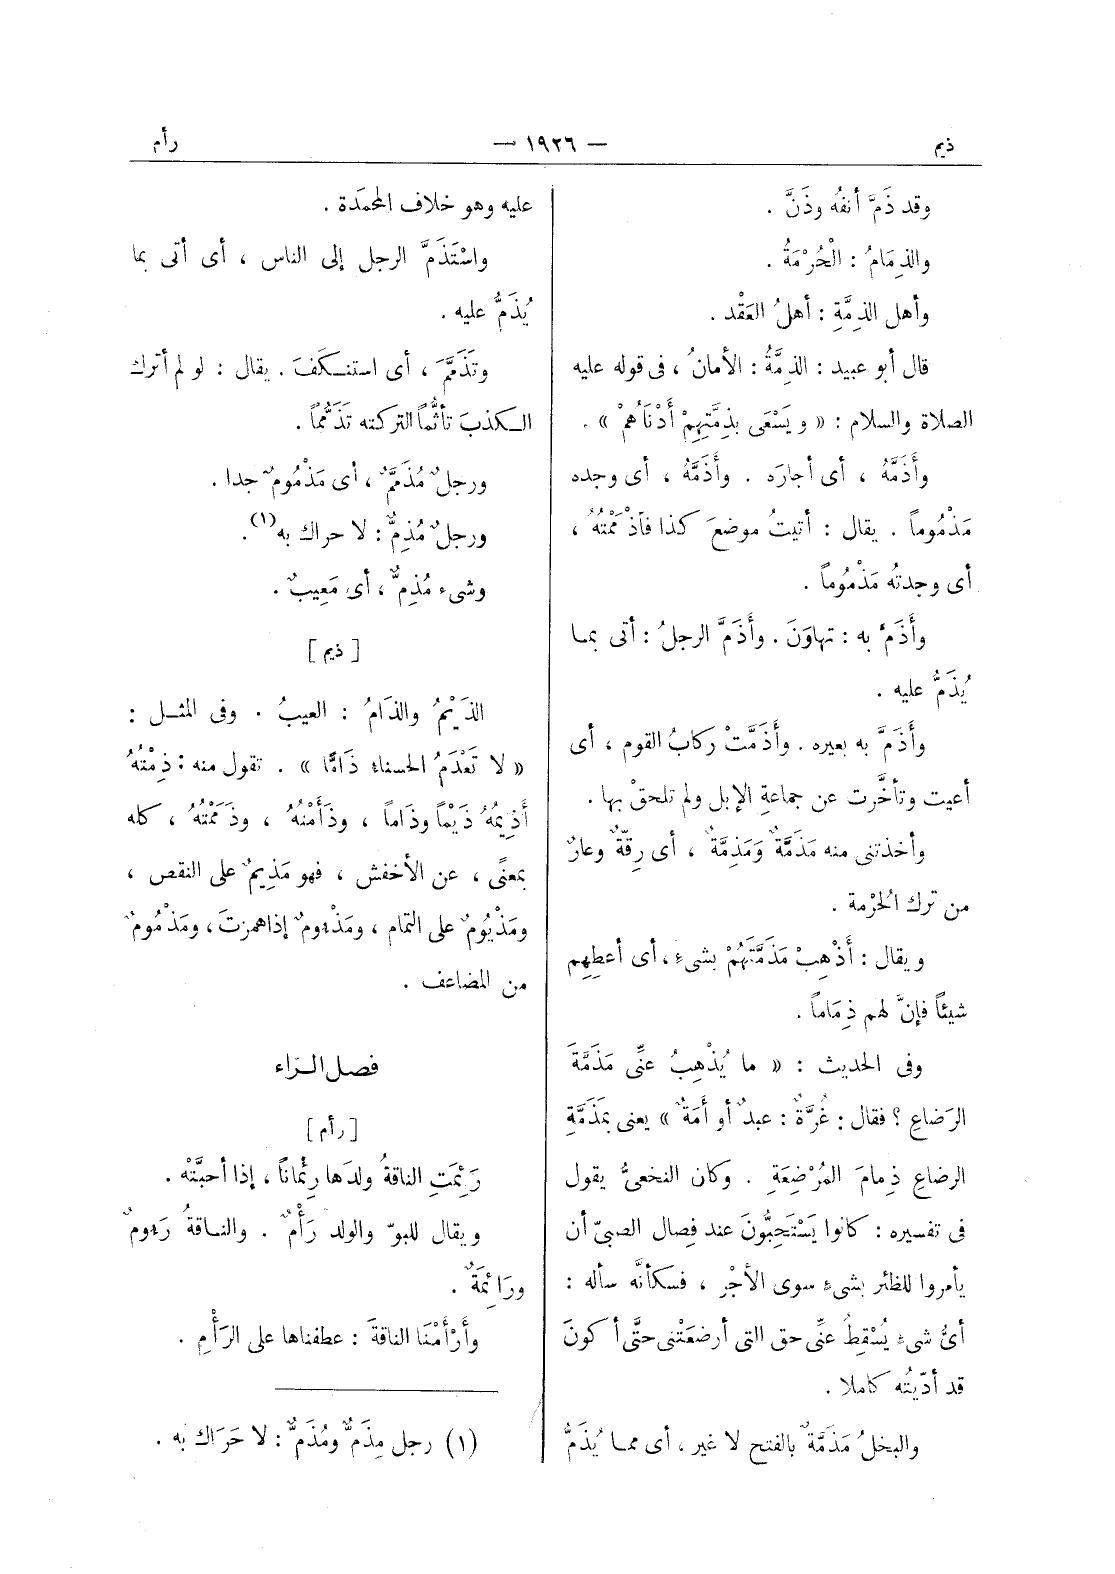 ذيم — ١٩٢٦ — رأم
وقد ذَمَّ أنفُه وذَنَّ .
والذِمَامُ : الْحُرْمَةُ .
وأهل الذِمَّةِ : أهلُ العَقْد .
قال أبو عبيد : الذِمَّةُ : الأمانُ ، فى قوله عليه
الصلاة والسلام : « ويَسْعَى بِذِمَّتِهِمْ أَدْنَاهُمْ » .
وأَذَمَّهُ ، أى أجارَه . وأَذَمَّهُ ، أى وجده
مَذْمُوماً . يقال : أتيتُ موضعَ كذا فأذْمَمْتُهُ ،
أى وجدتُه مَذْمُوماً .
وأَذَمَّ به : تهاوَنَ . وأَذَمَّ الرجلُ : أتى بما
يُذَمُّ عليه .
وأَذَمَّ به بعيره . وأَذَمَّتْ ركابُ القوم ، أى
أعيت وتأخَّرت عن جماعةِ الإبل ولم تلحقْ بها .
وأخذتنى منه مَذَمَّةٌ وَمَذِمَّةٌ ، أى رِقّةٌ وعارٌ
من ترك الحُرْمة .
ويقال : أَذْهِبْ مَذَمَّتَهُمْ بشىءٍ ، أى أعطِهِم
شيئاً فإنَّ لهم ذِمَاماً .
وفى الحديث : « ما يُذْهِبُ عنِّى مَذَمَّةَ
الرَضاعِ ؟ فقال : غُرَّةٌ : عبدٌ أو أَمَةٌ » يعنى بمَذَمَّةِ
الرضاعِ ذِمامَ المُرْضِعَةِ . وكان النخعىُّ يقول
فى تفسيره : كانوا يَسْتَحِبُّونَ عند فِصال الصبىّ أن
يأمروا للظئر بشىءٍ سوى الأجْرِ ، فسكأنَّه سأله :
أىُّ شىءٍ يُسْقِطُ عنِّى حق التى أرضعَتْنى حتَّى أكونَ
قد أدّيتُه كاملا .
والبخلُ مَذَمَّةٌ بالفتح لا غير ، أى مما يُذَمُّ
عليه وهو خلاف المحمَدة .
واسْتَذَمَّ الرجل إلى الناس ، أى أتى بما
يُذَمُّ عليه .
وتَذَمَّمَ ، أى استنكَفَ . يقال : لو لم أترك
الكذبَ تأثُّماً لتركته تَذَمُّماً .
ورجلٌ مُذَمَّمٌ ، أى مَذْمُومٌ جدا .
ورجلٌ مُذِمٌّ : لا حراك به(١) .
وشىء مُذِمٌّ ، أى مَعِيبٌ .
[ ذيم ]
الذَيْمُ والذَامُ : العيبُ . وفى المثل :
« لا تَعْدَمُ الحسناء ذَامًّا » . تقول منه : ذِمْتُهُ
أَذِيمُهُ ذَيْماً وذَاماً ، وذَأَمْتُهُ ، وذَمَمْتُهُ ، كله
بمعنًى ، عن الأخفش ، فهو مَذِيمٌ على النقص ،
ومَذْيُومٌ على التمام ، ومَذْءومٌ إذا همزتَ ، ومَذْمُومٌ
من المضاعف .
فصل الراء
[ رأم ]
رَئِمَتِ الناقةُ ولدَها رِئْماناً ، إذا أحبَّتْه .
ويقال للبوّ والولد رَأْمٌ . والناقةُ رَءُومٌ
ورَائِمَةٌ .
وأَرْأَمْنَا الناقةَ : عطفناها على الرَأْمِ .
(١) رجل مِذَمٌّ ومُذَمٌّ : لا حَرَاكَ به .